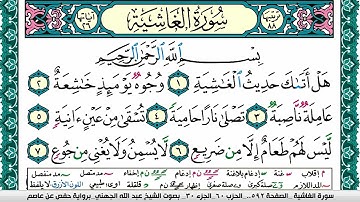 ترتيبها ٨٨
سُورَةُ الغَاشِيَةِ
آياتها ٢٦
بِسْمِ ٱللَّهِ ٱلرَّحْمَٰنِ ٱلرَّحِيمِ
هَلْ أَتَىٰكَ حَدِيثُ ٱلْغَٰشِيَةِ ١ وُجُوهٌ يَوْمَئِذٍ خَٰشِعَةٌ ٢
عَامِلَةٌ نَّاصِبَةٌ ٣ تَصْلَىٰ نَارًا حَامِيَةً ٤ تُسْقَىٰ مِنْ عَيْنٍ ءَانِيَةٍ ٥
لَّيْسَ لَهُمْ طَعَامٌ إِلَّا مِن ضَرِيعٍ ٦ لَّا يُسْمِنُ وَلَا يُغْنِى مِن جُوعٍ ٧
سورة الغاشية . الصفحة ٥٩٢ .... الحزب ٦٠ . الجزء ٣٠ . بصوت الشيخ عبد الله الجهني . برواية حفص عن عاصم